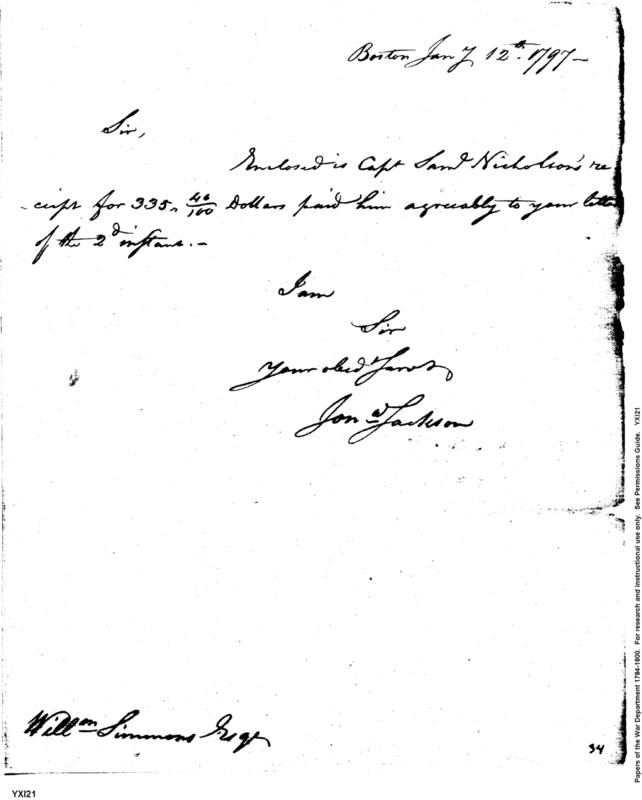 Boston Jany 12th. 1797 -
Sir,
Enclosed is Capt Saml Nicholson's re
- ceipt for 335 " 46/100 Dollars paid him agreeably to your letter
of the 2d instant. -
I am
Sir
Your obed Servt
Jona Jackson
Willm Simmons Esqr
34
YXI21
Papers of the War Department 1784-1800. For research and instructional use only. See Permissions Guide. YXI21